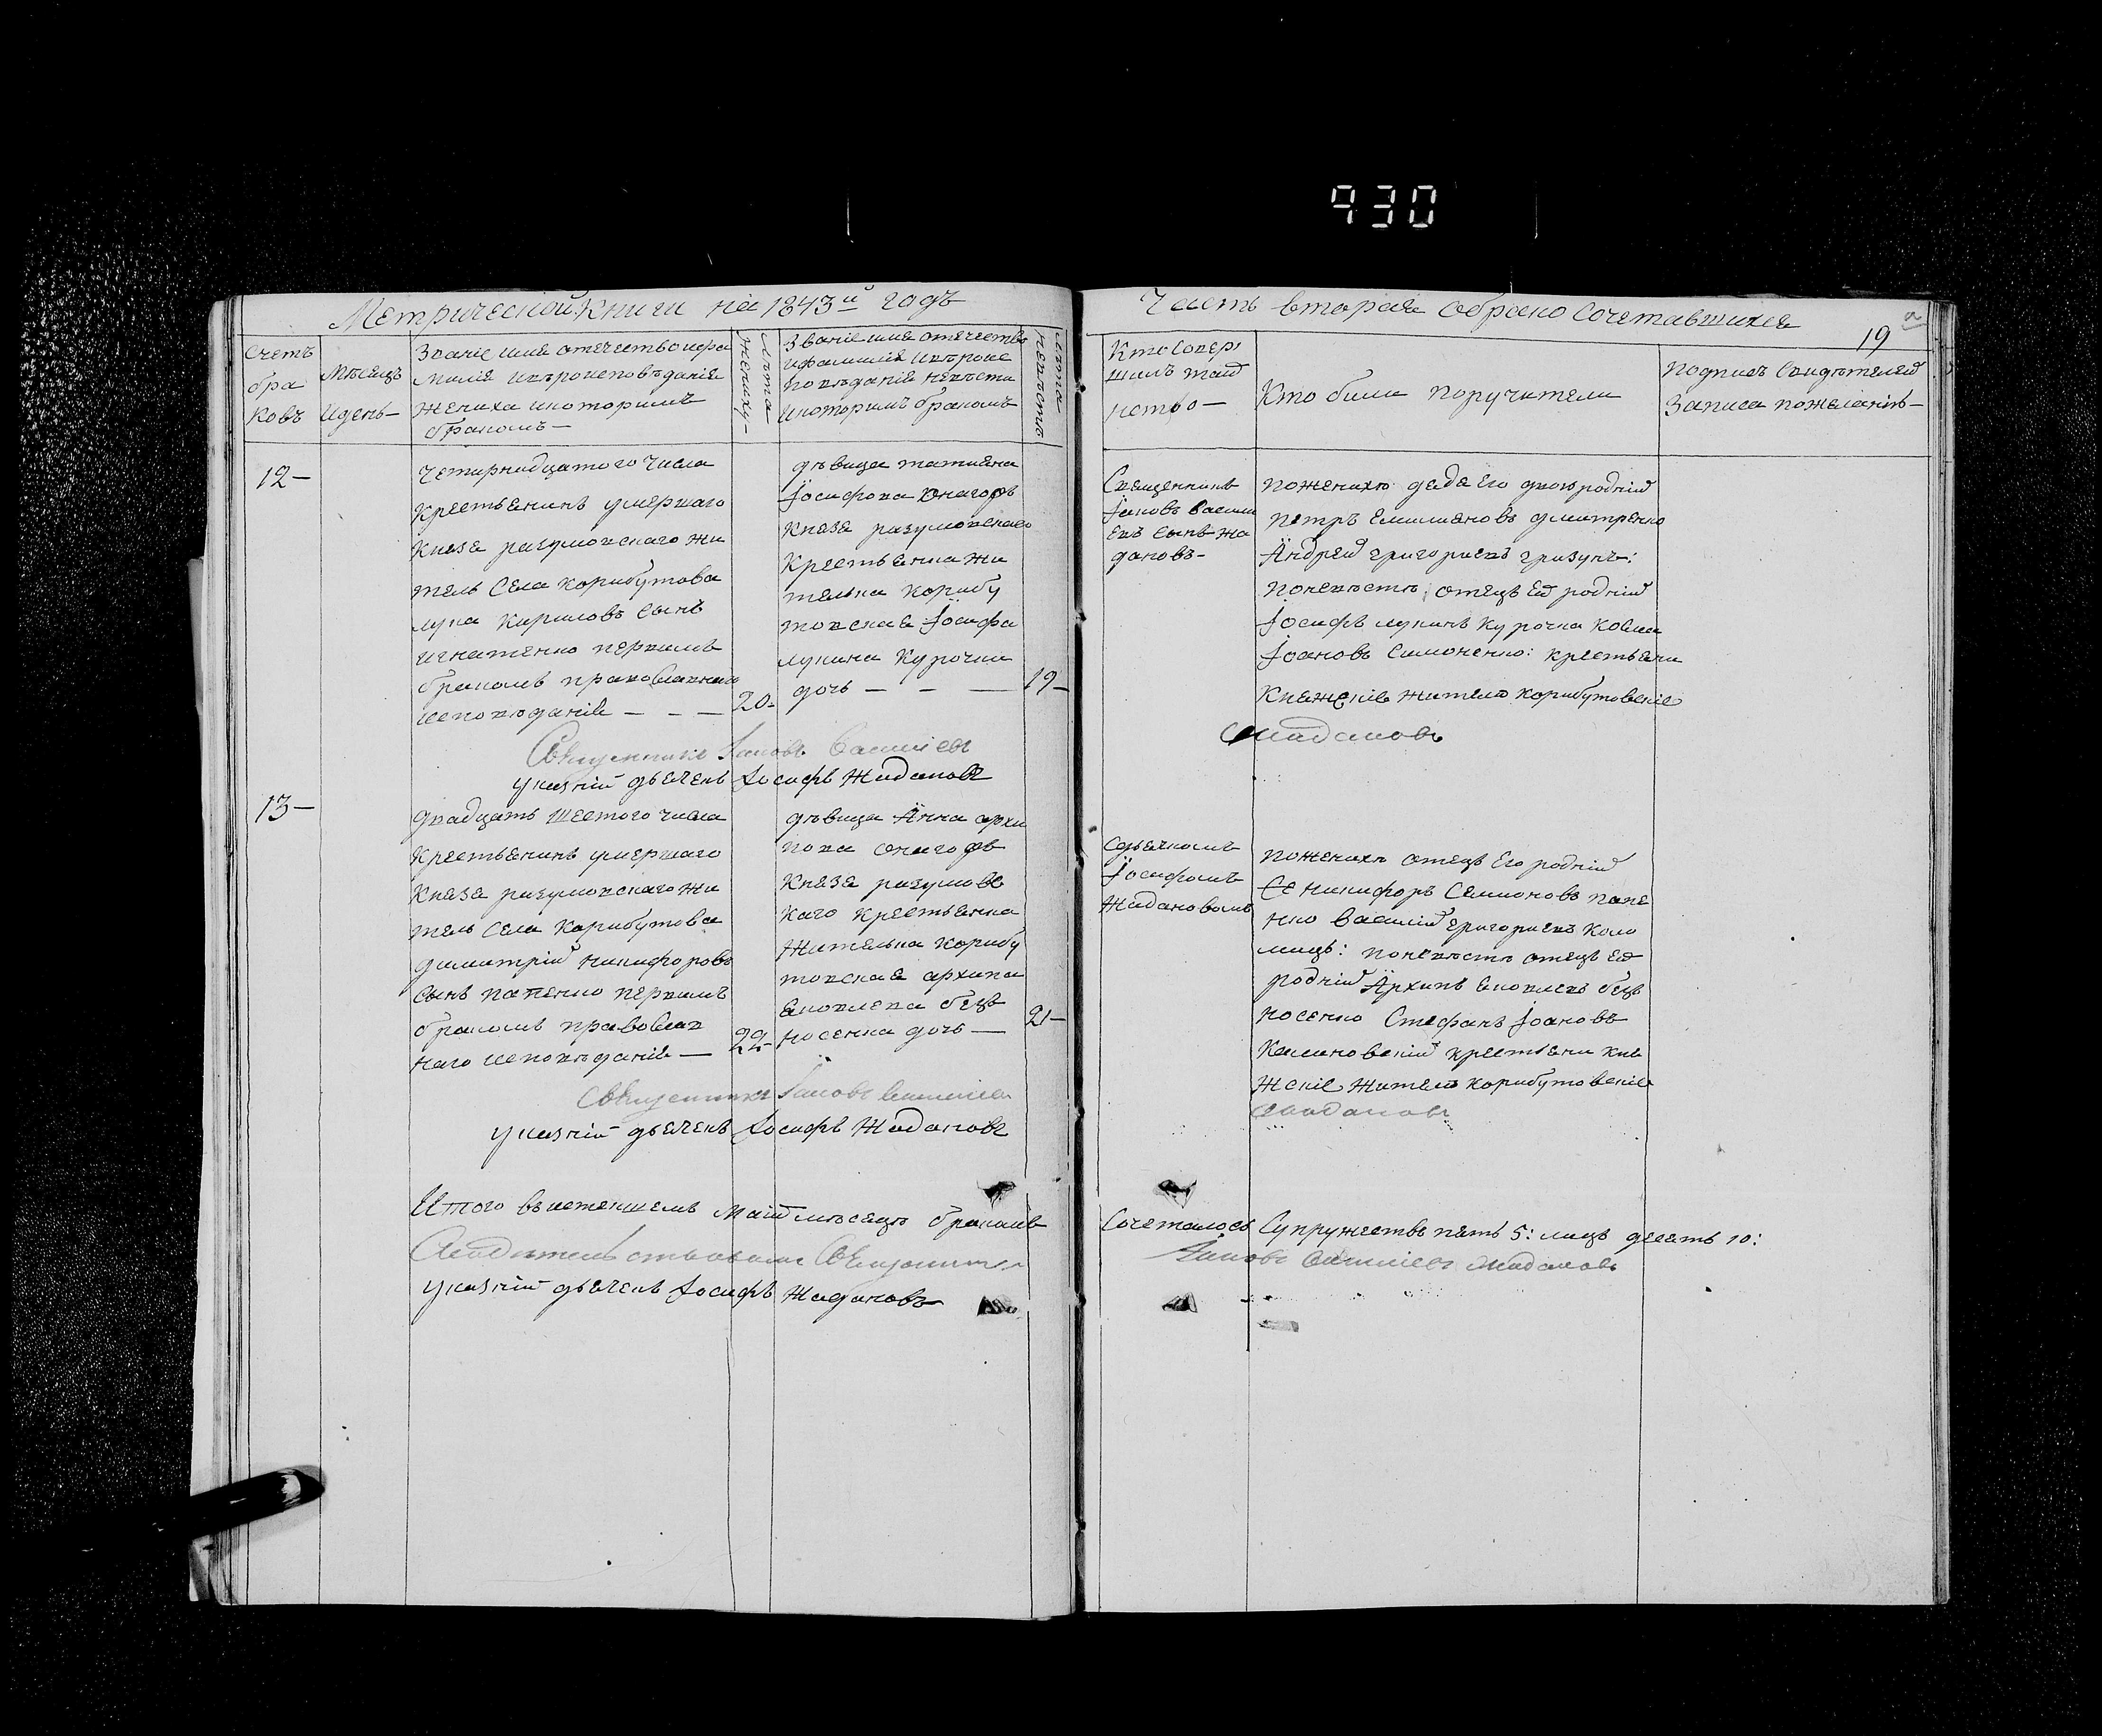 930
Метрической книги на 1843й годъ
Часть вторая обрако сочетавшихся
19
Счетъ
бра
ковъ
Мѣсяцъ
и день—
Званіе имя отечество и фа
милія и вѣроисповѣданіе
жениха и которимъ
бракомъ—
Лѣта
жениху—
Званіе имя отечество
и фамилія и вѣроис
повѣданіе невѣсти
и которимъ бракомъ
Лѣта
невѣсти
Кто совер
шилъ таи̃
нство—
Кто били поручители
Подписъ свидѣтелей
записа по желанію—
12—
Четирнадцатого числа
крестьянинъ умершаго
Князя разумовскаго жи
тель села корибутова
лука кириловъ сынъ
игнатенко первимъ
бракомъ православнаго
исповѣданія — — —
20.
дѣвица татияна
Іосифова онагожъ
Князя разумовскаго
крестьянка жи
телька корибу
товская Іосифа
лукина курочки
дочь — — —
19—
Священникъ
Іаковъ Васили
евъ сынъ жа
дановъ—
по жениху дядя его двоюродній
петръ емилияновъ дмитренко
Андрей григориевъ гризунъ:
по невѣстѣ отецъ ей родній
Іосифъ лукинъ курочка косма
Іоановъ симоненко: крестьяни
Княжскія жители корибутовскія
Жадановъ
Священникъ Іаковъ Василіевъ
указній дьячекъ Іосифъ Жадановъ
13—
двадцать шестого числа
крестьянинъ умершаго
Князя разумовскаго жи
тель села корибутова
димитрій никифоровъ
сынъ папенко первимъ
бракомъ православ
наго исповѣданія —
22—
дѣвица Анна архи
пова онагожъ
Князя разумовс
каго крестьянка
жителька корибу
товская архипа
яковлева безъ
носенка дочь —
21—
Здьячкомъ
Іосифомъ
Жадановомъ
по жениху отецъ его родній
никифоръ Семионовъ папе
нко василій григориевъ коло
міецъ: по невѣстѣ отецъ ей
родній Архипъ яковлевъ безъ
носенко Стефанъ Іоановъ
крестьяни кня
жскіе жители корибутовскіе
Жадановъ
Священникъ Іаковъ Василіев
указній дьячекъ Іосифъ Жадановъ
Итого въ истекшемъ маій мѣсяцѣ бракомъ
сочеталось супружествъ пять 5: лицъ десять 10:
Священник
Іаковъ Василіевъ Жадановъ
указній дьячекъ Іосифъ Жадановъ